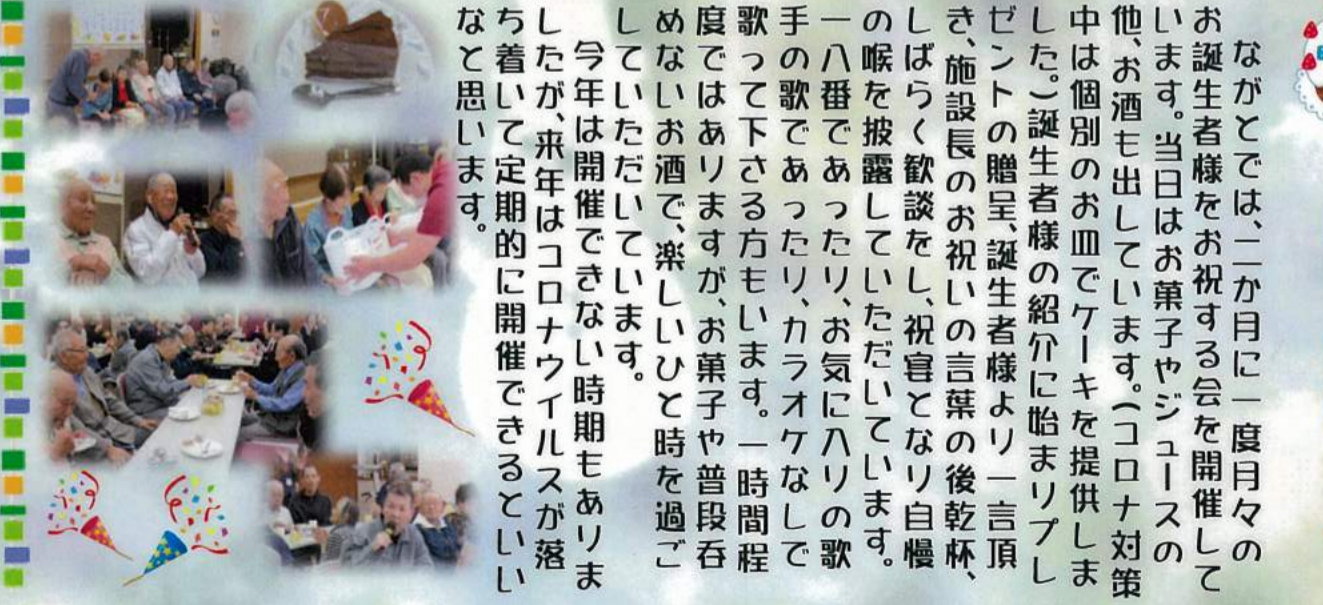 ながとでは、二か月に一度月々の
お誕生者様をお祝する会を開催して
います。当日はお菓子やジュースの
他、お酒も出しています。(コロナ対策
中は個別のお皿でケーキを提供しま
した。)誕生者様の紹介に始まりプレ
ゼントの贈呈、誕生者様より一言頂
き、施設長のお祝いの言葉の後乾杯、
しばらく歓談をし、祝宴となり自慢
の喉を披露していただいています。
一八番であったり、お気に入りの歌
手の歌であったり、カラオケなしで
歌って下さる方もいます。一時間程
度ではありますが、お菓子や普段呑
めないお酒で、楽しいひと時を過ご
していただいています。
今年は開催できない時期もありま
したが、来年はコロナウイルスが落
ち着いて定期的に開催できるといい
なと思います。